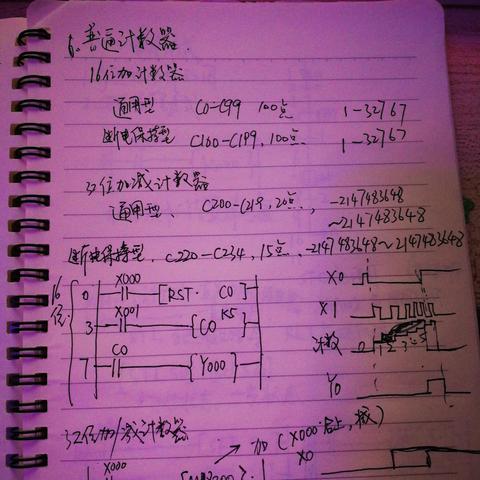 6、普通计数器
16位加计数器
通用型 C0-C99 100点 1-32767
断电保持型 C100-C199, 100点 1-32767
32位加减计数器
通用型、 C200-C219, 20点, -2147483648
~2147483648
断电保持型, C220-C234, 15点, -2147483648~2147483648
16位
X000
0 [RST C0]
X001 K5
3 (C0
C0
7 (Y000)
X0
X1
计数 0 1 2 3 4 5
Y0
32位加/减计数器
加 (X000
X000
X0